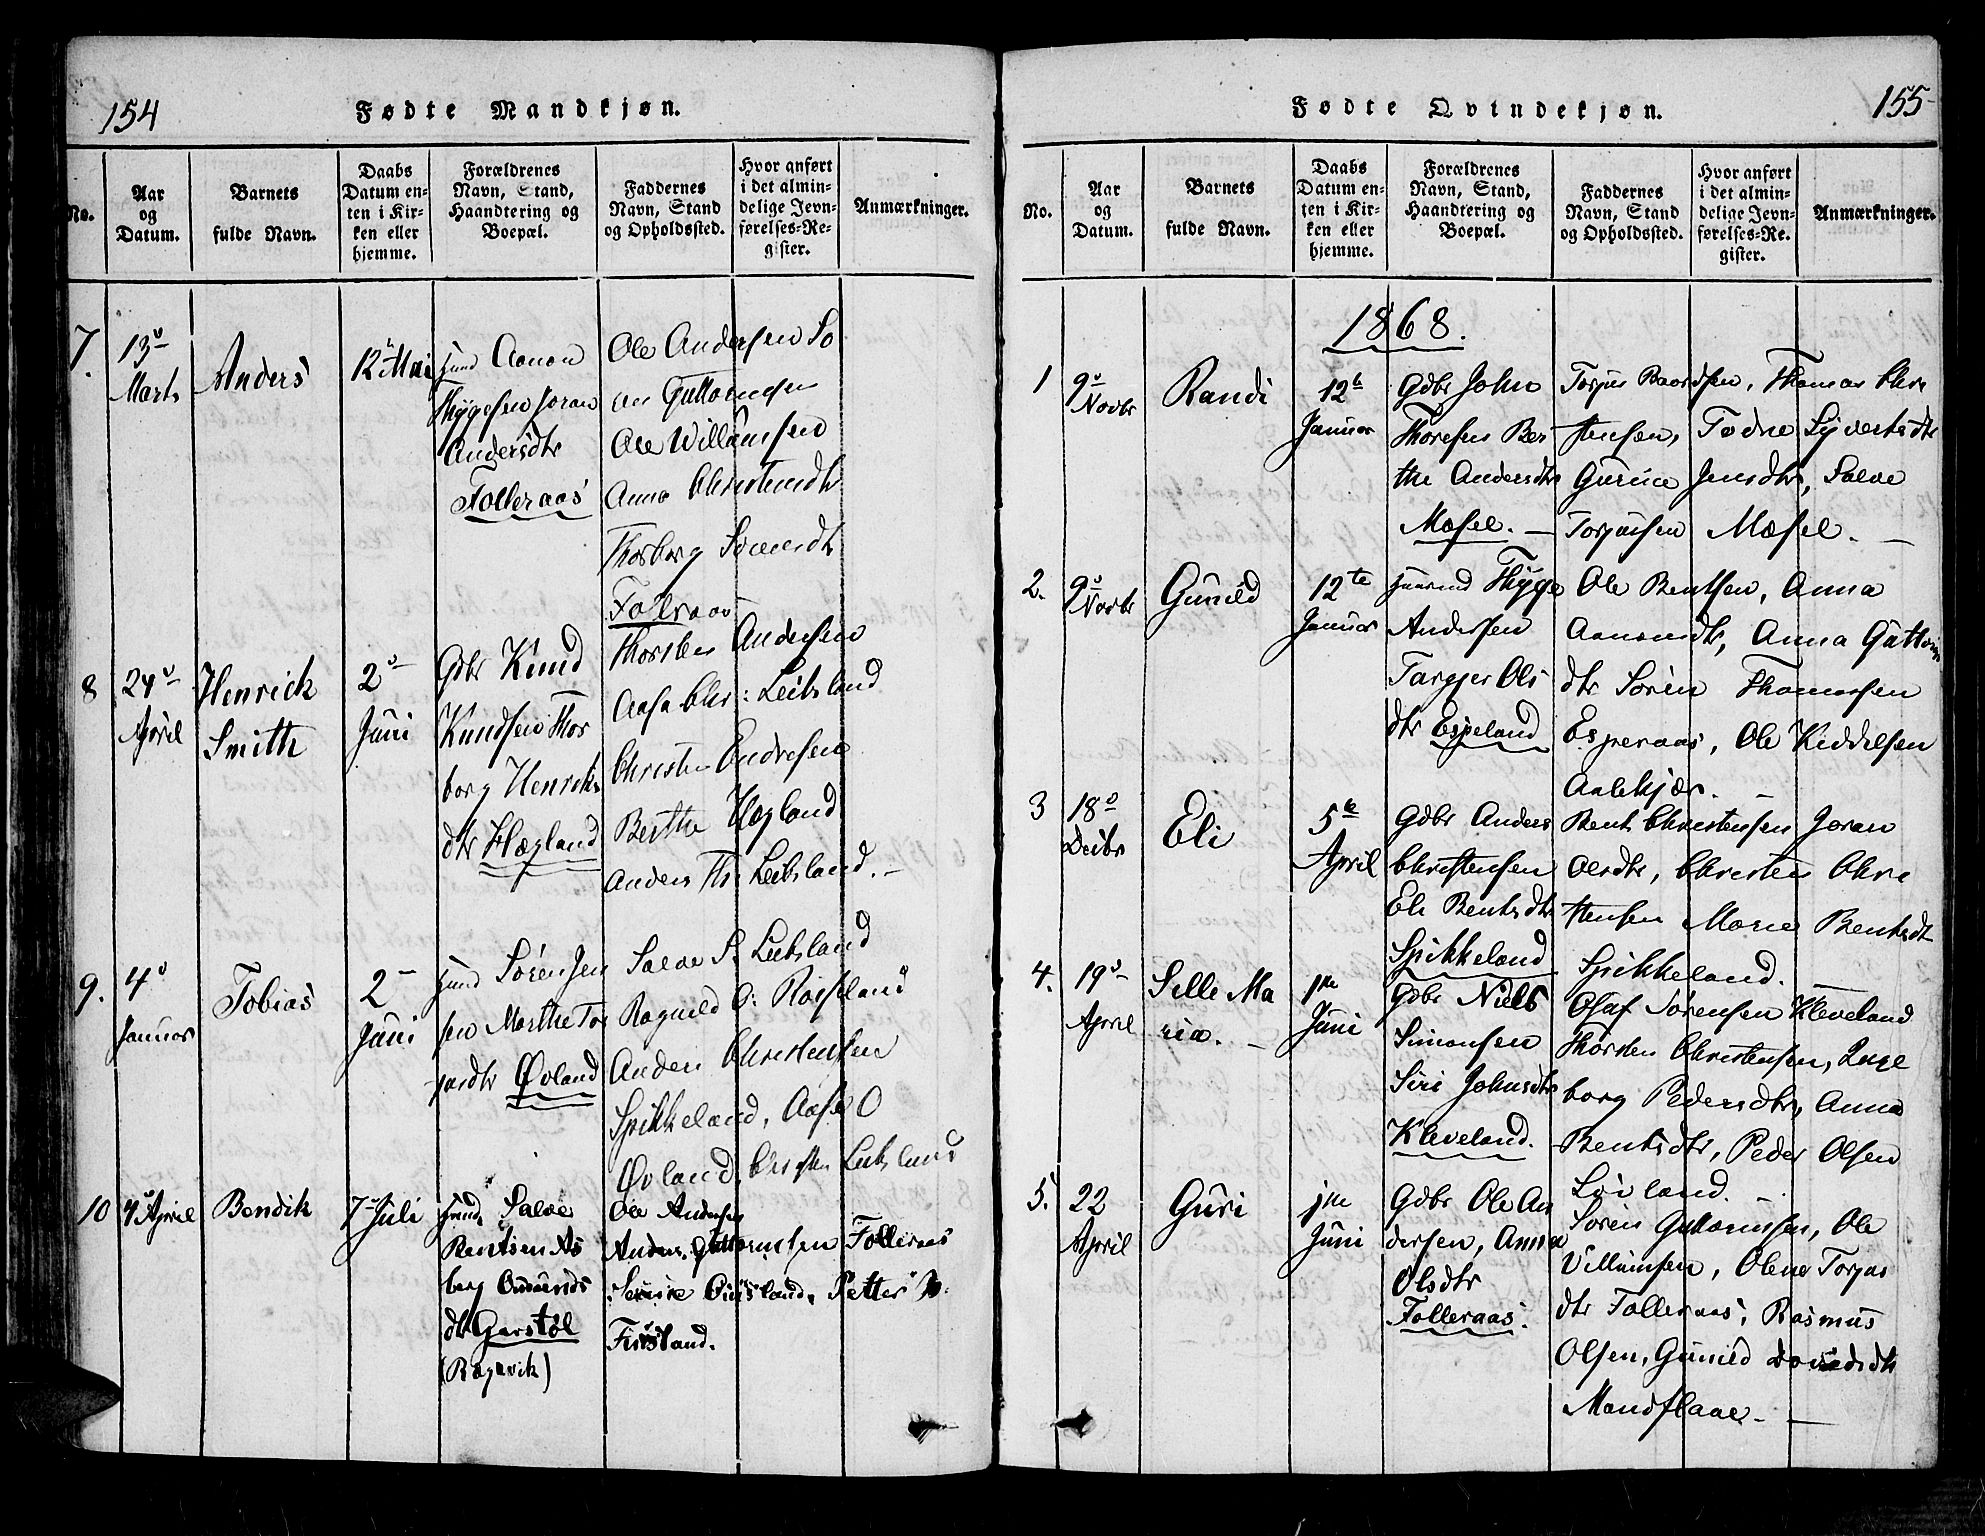 154
Fødte Mandkjøn.
No.
Aar
og
Datum.
Barnets
fulde Navn.
Daabs
Datum en-
ten i Kir-
ken eller
hjemme.
Forældrenes
Navn, Stand,
Haandtering og
Boepæl.
Faddernes
Navn, Stand
og Opholdssted.
Hvor anført
i det almin-
delige Jevn-
førelses-Re-
gister.
Anmærkninger.
7.
13
Marts
Anders
12 Mai
Aanon
Thygesen Joran
Andersdtr
Folleraas
Ole Andersen
Guttormsen
Ole Willumsen
Anna Christensdtr
Thorborg
Folleraas
8
24
April
Henrick
Smith
2
Juni
Gdbr Knud
Knudsen Thor
borg Henriks
dtr Hægland
Thorsten Andersen
Aase Chr: Leibsland
Christen Endresen
Berthe Hægland
Anders Th: Leibsland. –
9.
4
Januar
Tobias
2
Juni
Søren Jen
sen Marthe Tor
jusdtr Øvland
Salve S. Leibsland
Ragnild O: Røiseland
Anders Christensen
Spikkeland, Aase O
Øvland, Christen Leibsland
10
4 April
Bendik
7 Juli
Salve
Bentsen As
berg
dtr Garstøl
(Røgevik)
Ole Andersen
Anders Guttormsen Folleraas
Petter
Fiskland.
155
Fødte Qvindekjøn.
No.
Aar
og
Datum.
Barnets
fulde Navn.
Daabs
Datum en-
ten i Kir-
ken eller
hjemme.
Forældrenes
Navn, Stand,
Haandtering og
Boepæl.
Faddernes
Navn, Stand
og Opholdssted.
Hvor anført
i det almin-
delige Jevn-
førelses-Re-
gister.
Anmærkninger.
1868.
1
9
Novbr
Randi
12te
Januar
Gdbr John
Thoresen Ber
the Andersdtr
Mæsel. –
Torjus Baardsen, Thomas Chri
stensen, Todne Syvertsdtr
Gurine Jensdtr, Salve
Torjussen Mæsel. –
2.
9
Novbr
Gunild
12te
Januar
Thyge
Andersen
Targjer Ols
dtr Espeland
Ole Bentsen, Anna
Aanonsdtr, Anna Guttorms
dtr Søren Thomassen
Esperaas, Ole Kiddelsen
Aalekjær. –
3
18
Decbr
Eli
5te
April
Gdbr Anders
Christensen
Eli Bentsdtr
Spikkeland
Bent Christensen Joran
Olsdtr, Christen Chri
stensen Marie Bentsdtr
Spikkeland. –
4.
19
April
Sille Ma
ria. –
1ste
Juni
Gdbr Niels
Simonsen
Siri Johnsdtr
Kleveland.
Olaf Sørensen Kleveland
Thorsten Christensen, Inge
borg Pedersdtr, Anna
Bentsdtr, Peder Olsen
Løiland. –
5.
22
April
Guri
1ste
Juni
Gdbr Ole An
dersen, Anna
Olsdtr
Folleraas.
Søren Guttormsen, Ole
Villumsen, Olene Torjus
dtr Folleraas, Rasmus
Olsen, Gunild Davidsdtr
Mandflaae. –